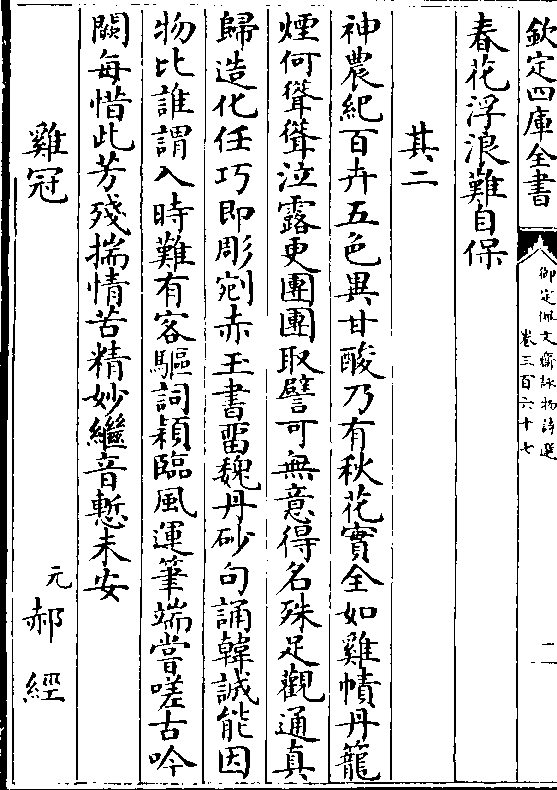 欽定四庫全書
御定佩文齋詠物詩選
卷三百六十七
二
春花浮浪難自保
其二
神農紀百卉五色異甘酸乃有秋花實全如雞幘丹籠
煙何聳聳泣露更團團取譬可無意得名殊足觀通真
歸造化任巧即彫剜赤玉書留魏丹砂句誦韓誠能因
物比誰謂入時難有客驅詞穎臨風運筆端嘗嗟古吟
闕每惜此芳殘揣情苦精妙繼音慙未安
雞冠
元郝經